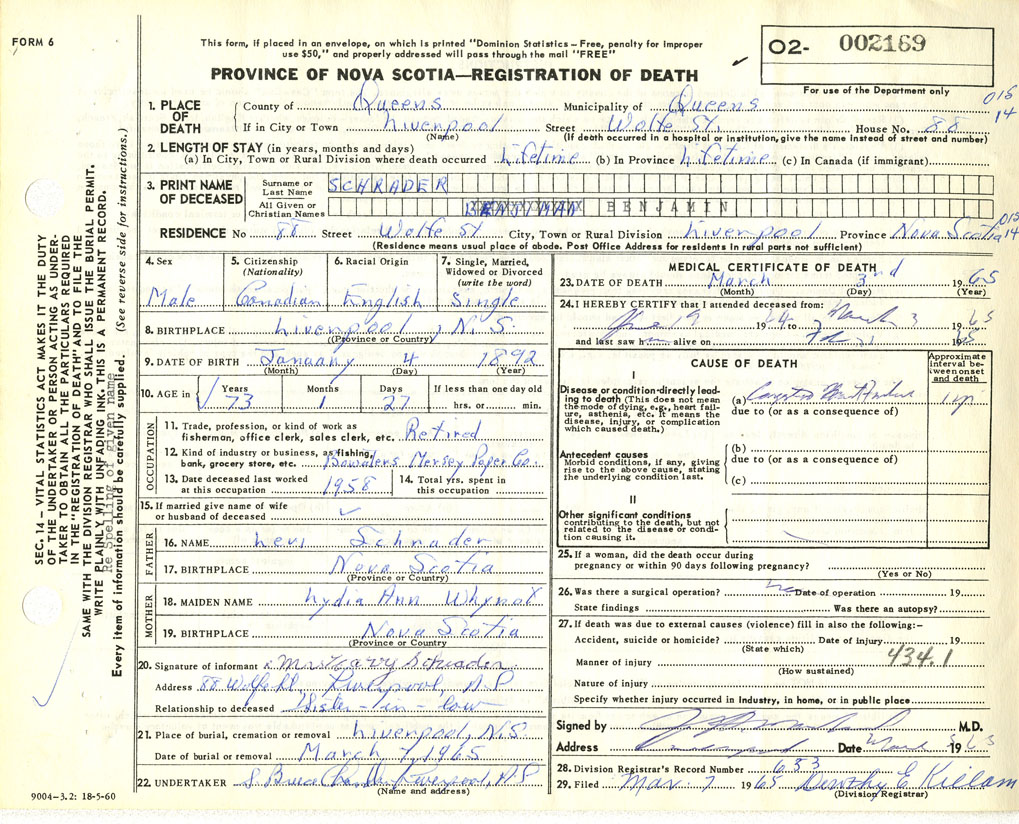 FORM 6
This form, if placed in an envelope, on which is printed "Dominion Statistics – Free, penalty for improper
use $50," and properly addressed will pass through the mail "FREE"
PROVINCE OF NOVA SCOTIA—REGISTRATION OF DEATH
O2- 002169
For use of the Department only
015
14
1. PLACE OF DEATH
County of Queens Municipality of Queens
If in City or Town Liverpool Street Wolfe St. House No. 88
(Name) (If death occurred in a hospital or institution, give the name instead of street and number)
2. LENGTH OF STAY (in years, months and days)
(a) In City, Town or Rural Division where death occurred Lifetime (b) In Province Lifetime (c) In Canada (if immigrant)
3. PRINT NAME OF DECEASED
Surname or Last Name SCHRADER
All Given or Christian Names BENJAMIN
015
14
RESIDENCE No 88 Street Wolfe St City, Town or Rural Division Liverpool Province Nova Scotia
(Residence means usual place of abode. Post Office Address for residents in rural parts not sufficient)
4. Sex
Male
5. Citizenship
(Nationality)
Canadian
6. Racial Origin
English
7. Single, Married,
Widowed or Divorced
(write the word)
Single
8. BIRTHPLACE Liverpool, N.S.
(Province or Country)
9. DATE OF BIRTH January 4 1892
(Month) (Day) (Year)
10. AGE in
Years Months Days If less than one day old
73 1 27 hrs. or min.
OCCUPATION
11. Trade, profession, or kind of work as
fisherman, office clerk, sales clerk, etc. Retired
12. Kind of industry or business, as fishing,
bank, grocery store, etc. Bowaters Mersey Paper Co.
13. Date deceased last worked
at this occupation 1958
14. Total yrs. spent in
this occupation
15. If married give name of wife
or husband of deceased
FATHER
16. NAME Levi Schrader
17. BIRTHPLACE Nova Scotia
(Province or Country)
MOTHER
18. MAIDEN NAME Lydia Ann Whynot
19. BIRTHPLACE Nova Scotia
(Province or Country)
20. Signature of informant x Mrs Harry Schrader
Address 88 Wolfe St. Liverpool, N.S
Relationship to deceased Sister-in-law
21. Place of burial, cremation or removal Liverpool, N.S
Date of burial or removal March 7, 1965
22. UNDERTAKER S Bruce Chandler Liverpool, N.S
(Name and address)
9004–3.2: 18-5-60
MEDICAL CERTIFICATE OF DEATH
23. DATE OF DEATH March 3rd 1965
(Month) (Day) (Year)
24. I HEREBY CERTIFY that I attended deceased from:
19 64 to March 3 1965
and last saw h alive on 19
CAUSE OF DEATH
Approximate
interval be-
tween onset
and death
I
Disease or condition directly lead-
ing to death (This does not mean
the mode of dying, e.g., heart fail-
ure, asthenia, etc. It means the
disease, injury, or complication
which caused death.)
(a)
due to (or as a consequence of)
Antecedent causes
Morbid conditions, if any, giving
rise to the above cause, stating
the underlying condition last.
(b)
due to (or as a consequence of)
(c)
II
Other significant conditions
contributing to the death, but not
related to the disease or condi-
tion causing it.
25. If a woman, did the death occur during
pregnancy or within 90 days following pregnancy?
(Yes or No)
26. Was there a surgical operation? no Date of operation 19
State findings Was there an autopsy?
27. If death was due to external causes (violence) fill in also the following:–
Accident, suicide or homicide? Date of injury 19
(State which)
434.1
Manner of injury
(How sustained)
Nature of injury
Specify whether injury occurred in industry, in home, or in public place
Signed by M.D.
Address Date March 5 1965
28. Division Registrar's Record Number 633
29. Filed Mar. 7 1965 Dorothy E Killam
(Division Registrar)
SEC. 14 – VITAL STATISTICS ACT MAKES IT THE DUTY
OF THE UNDERTAKER OR PERSON ACTING AS UNDER-
TAKER TO OBTAIN ALL THE PARTICULARS REQUIRED
IN THE "REGISTRATION OF DEATH" AND TO FILE THE
SAME WITH THE DIVISION REGISTRAR WHO SHALL ISSUE THE BURIAL PERMIT.
WRITE PLAINLY WITH UNFADING INK. THIS IS A PERMANENT RECORD.
Re Spelling of given name
Every item of information should be carefully supplied. (See reverse side for instructions.)